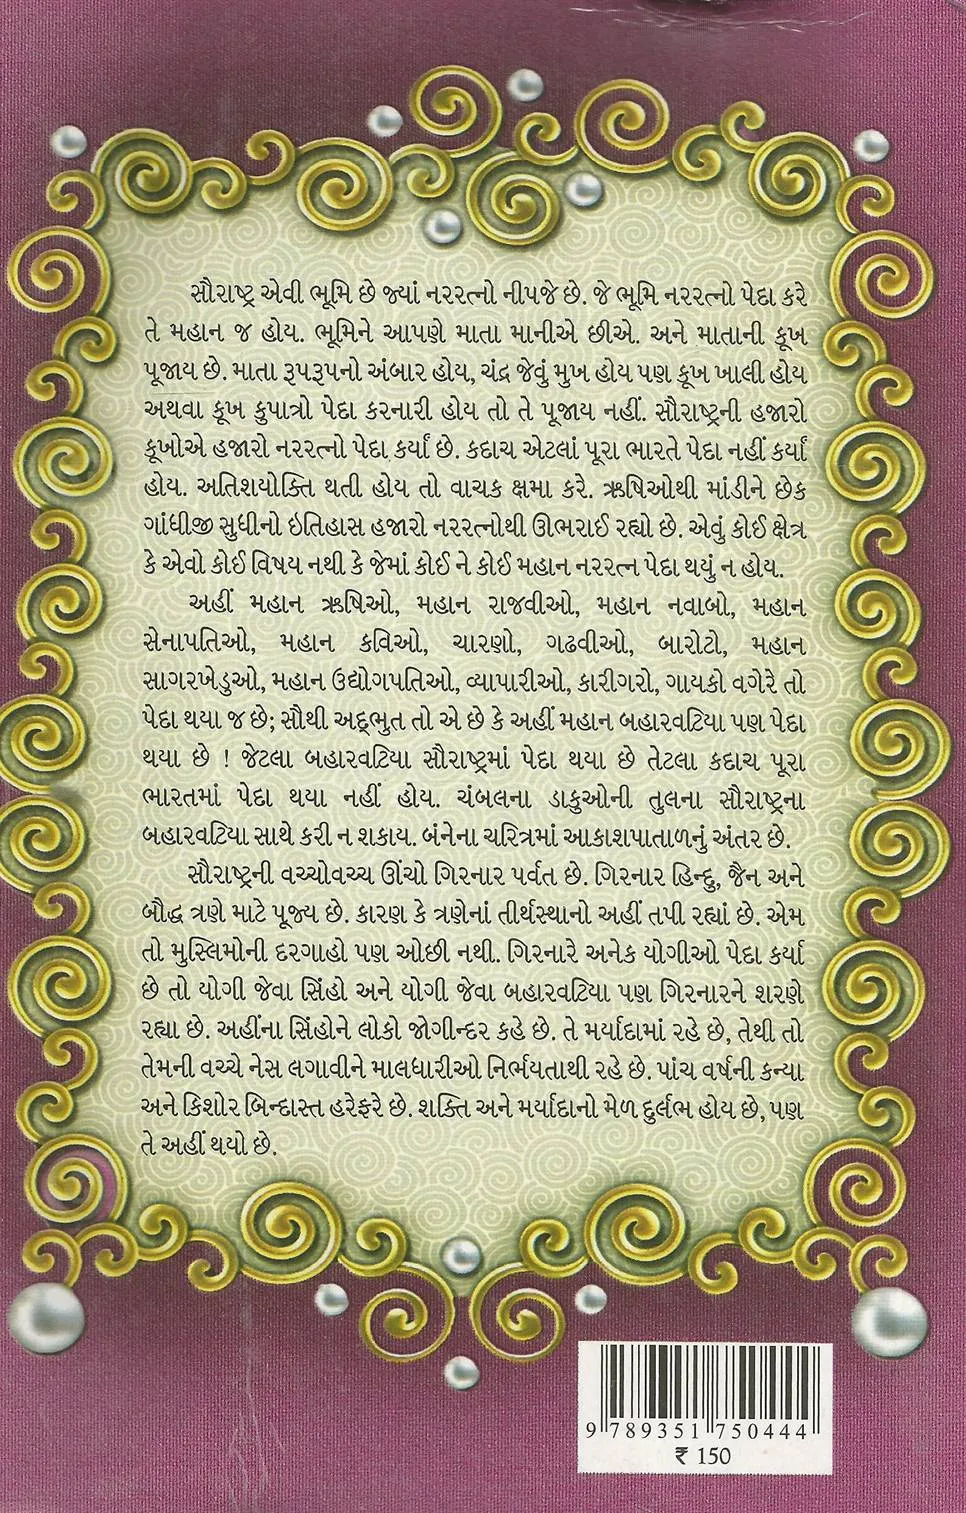 સૌરાષ્ટ્ર એવી ભૂમિ છે જ્યાં નરરત્નો નીપજે છે. જે ભૂમિ નરરત્નો પેદા કરે
તે મહાન જ હોય. ભૂમિને આપણે માતા માનીએ છીએ. અને માતાની કૂખ
પૂજાય છે. માતા રૂપરૂપનો અંબાર હોય, ચંદ્ર જેવું મુખ હોય પણ કૂખ ખાલી હોય
અથવા કૂખ કુપાત્રો પેદા કરનારી હોય તો તે પૂજાય નહીં. સૌરાષ્ટ્રની હજારો
કૂખોએ હજારો નરરત્નો પેદા કર્યાં છે. કદાચ એટલાં પૂરા ભારતે પેદા નહીં કર્યાં
હોય. અતિશયોક્તિ થતી હોય તો વાચક ક્ષમા કરે. ઋષિઓથી માંડીને છેક
ગાંધીજી સુધીનો ઇતિહાસ હજારો નરરત્નોથી ઊભરાઈ રહ્યો છે. એવું કોઈ ક્ષેત્ર
કે એવો કોઈ વિષય નથી કે જેમાં કોઈ ને કોઈ મહાન નરરત્ન પેદા થયું ન હોય.
અહીં મહાન ઋષિઓ, મહાન રાજવીઓ, મહાન નવાબો, મહાન
સેનાપતિઓ, મહાન કવિઓ, ચારણો, ગઢવીઓ, બારોટો, મહાન
સાગરખેડુઓ, મહાન ઉદ્યોગપતિઓ, વ્યાપારીઓ, કારીગરો, ગાયકો વગેરે તો
પેદા થયા જ છે; સૌથી અદ્ભુત તો એ છે કે અહીં મહાન બહારવટિયા પણ પેદા
થયા છે ! જેટલા બહારવટિયા સૌરાષ્ટ્રમાં પેદા થયા છે તેટલા કદાચ પૂરા
ભારતમાં પેદા થયા નહીં હોય. ચંબલના ડાકુઓની તુલના સૌરાષ્ટ્રના
બહારવટિયા સાથે કરી ન શકાય. બંનેના ચરિત્રમાં આકાશપાતાળનું અંતર છે.
સૌરાષ્ટ્રની વચ્ચોવચ્ચ ઊંચો ગિરનાર પર્વત છે. ગિરનાર હિન્દુ, જૈન અને
બૌદ્ધ ત્રણે માટે પૂજ્ય છે. કારણ કે ત્રણેનાં તીર્થસ્થાનો અહીં તપી રહ્યાં છે. એમ
તો મુસ્લિમોની દરગાહો પણ ઓછી નથી. ગિરનારે અનેક યોગીઓ પેદા કર્યા
છે તો યોગી જેવા સિંહો અને યોગી જેવા બહારવટિયા પણ ગિરનારને શરણે
રહ્યા છે. અહીંના સિંહોને લોકો જોગીન્દર કહે છે. તે મર્યાદામાં રહે છે, તેથી તો
તેમની વચ્ચે નેસ લગાવીને માલધારીઓ નિર્ભયતાથી રહે છે. પાંચ વર્ષની કન્યા
અને કિશોર બિન્દાસ્ત હરેફરે છે. શક્તિ અને મર્યાદાનો મેળ દુર્લભ હોય છે, પણ
તે અહીં થયો છે.
9 789351 750444
₹ 150